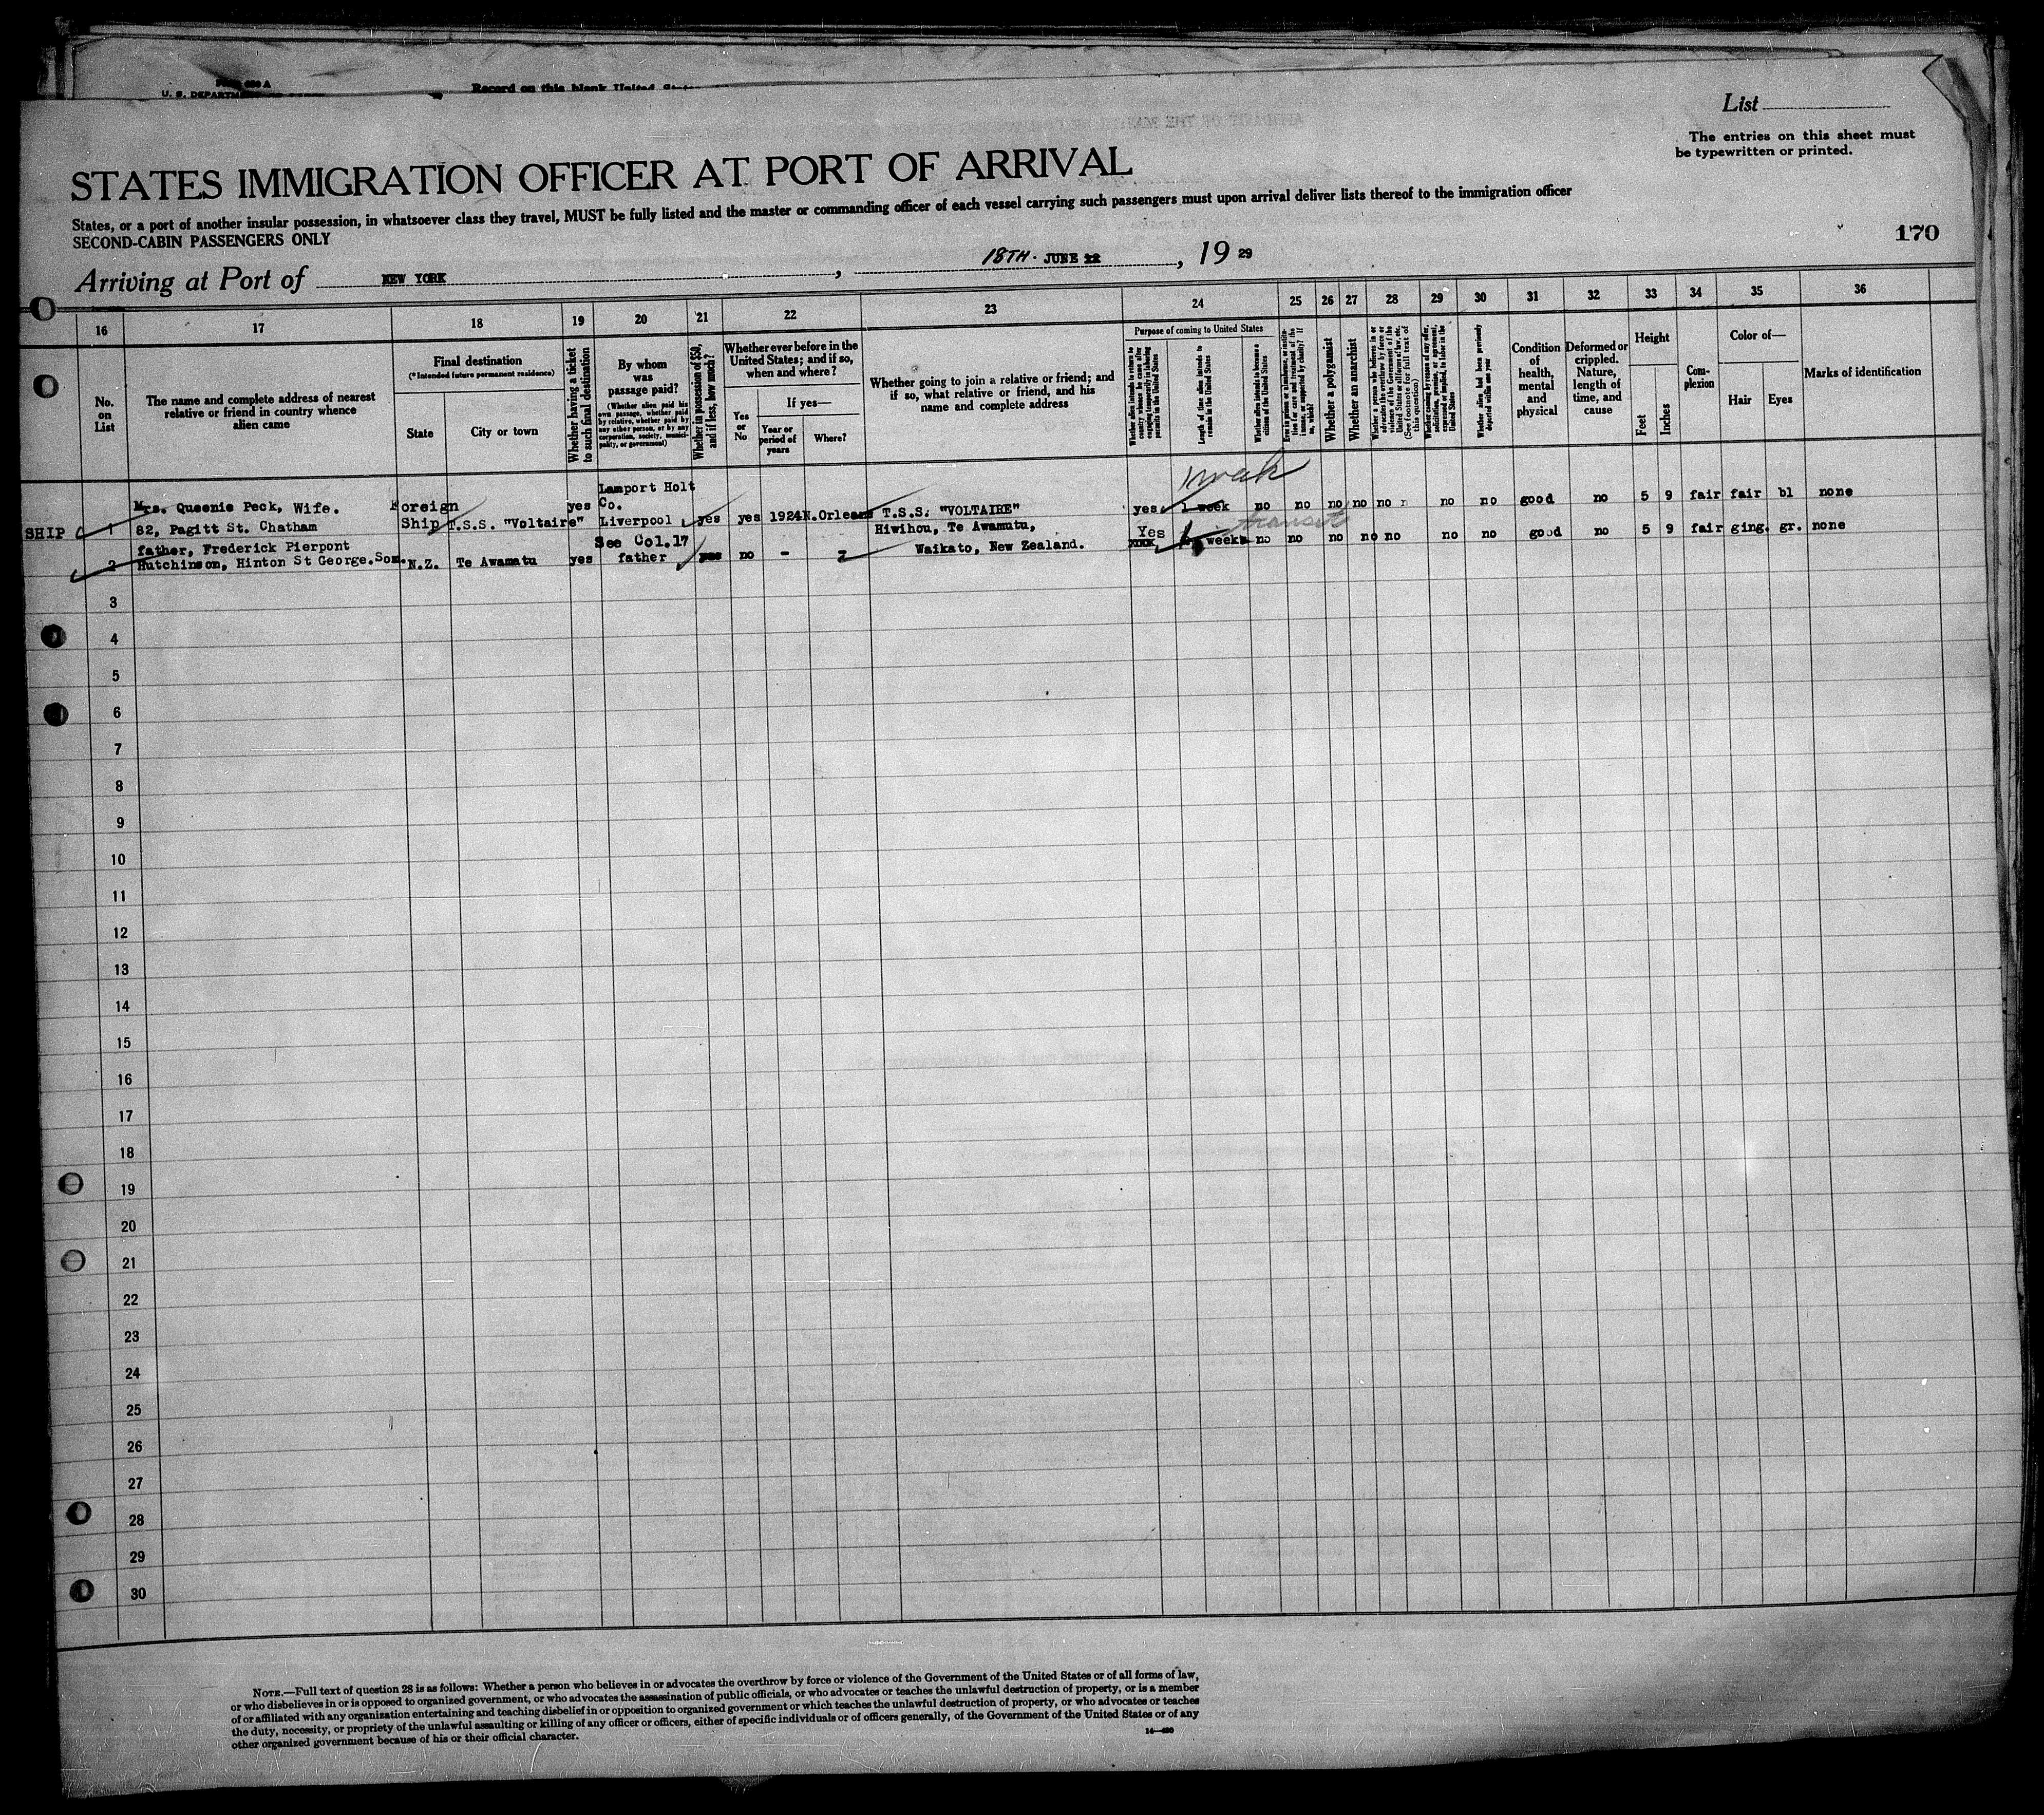 U. S. DEPARTM
Record on this blank United
List
The entries on this sheet must
be typewritten or printed.
STATES IMMIGRATION OFFICER AT PORT OF ARRIVAL
States, or a port of another insular possession, in whatsoever class they travel, MUST be fully listed and the master or commanding officer of each vessel carrying such passengers must upon arrival deliver lists thereof to the immigration officer
SECOND-CABIN PASSENGERS ONLY
170
Arriving at Port of NEW YORK, 18TH. JUNE 22, 19 29
16 17 18 19 20 21 22 23 24 25 26 27 28 29 30 31 32 33 34 35 36
No. on List
The name and complete address of nearest relative or friend in country whence alien came
Final destination
(* Intended future permanent residence)
State
City or town
Whether having a ticket to such final destination
By whom was passage paid?
(Whether alien paid his own passage, whether paid by relative, whether paid by any other person, or by any corporation, society, municipality, or government)
Whether in possession of $50, and if less, how much?
Whether ever before in the United States; and if so, when and where?
Yes or No
If yes—
Year or period of years
Where?
Whether going to join a relative or friend; and if so, what relative or friend, and his name and complete address
Purpose of coming to United States
Whether alien intends to return to country whence he came after engaging temporarily in laboring pursuits in the United States
Length of time alien intends to remain in the United States
Whether alien intends to become a citizen of the United States
Ever in prison or almshouse, or institution for care and treatment of the insane, or supported by charity? If so, which?
Whether a polygamist
Whether an anarchist
Whether a person who believes in or advocates the overthrow by force or violence of the Government of the United States or all forms of law, etc. (See footnote for full text of this question)
Whether coming by reason of any offer, solicitation, promise, or agreement, expressed or implied, to labor in the United States
Whether alien had been previously deported within one year
Condition of health, mental and physical
Deformed or crippled. Nature, length of time, and cause
Height
Feet
Inches
Complexion
Color of—
Hair
Eyes
Marks of identification
1 week
SHIP 1 Mrs. Queenie Peck, Wife. 82, Pagitt St. Chatham Foreign Ship T.S.S. "Voltaire" yes Lamport Holt Co. Liverpool yes yes 1924 N.Orleans T.S.S. "VOLTAIRE" yes 1 week no no no no no no no good no 5 9 fair fair bl none
transit
2 father, Frederick Pierpont Hutchinson, Hinton St George.Som. N.Z. Te Awamatu yes See Col.17 father yes no - Hiwihou, Te Awamutu, Waikato, New Zealand. Yes weeks no no no no no no no good no 5 9 fair ging. gr. none
3
4
5
6
7
8
9
10
11
12
13
14
15
16
17
18
19
20
21
22
23
24
25
26
27
28
29
30
NOTE.—Full text of question 28 is as follows: Whether a person who believes in or advocates the overthrow by force or violence of the Government of the United States or of all forms of law,
or who disbelieves in or is opposed to organized government, or who advocates the assassination of public officials, or who advocates or teaches the unlawful destruction of property, or is a member
of or affiliated with any organization entertaining and teaching disbelief in or opposition to organized government or which teaches the unlawful destruction of property, or who advocates or teaches
the duty, necessity, or propriety of the unlawful assaulting or killing of any officer or officers, either of specific individuals or of officers generally, of the Government of the United States or of any
other organized government because of his or their official character.